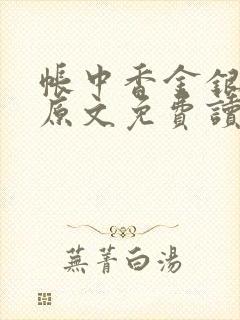 帳中香金銀
原文免費讀
蕪菁白湯